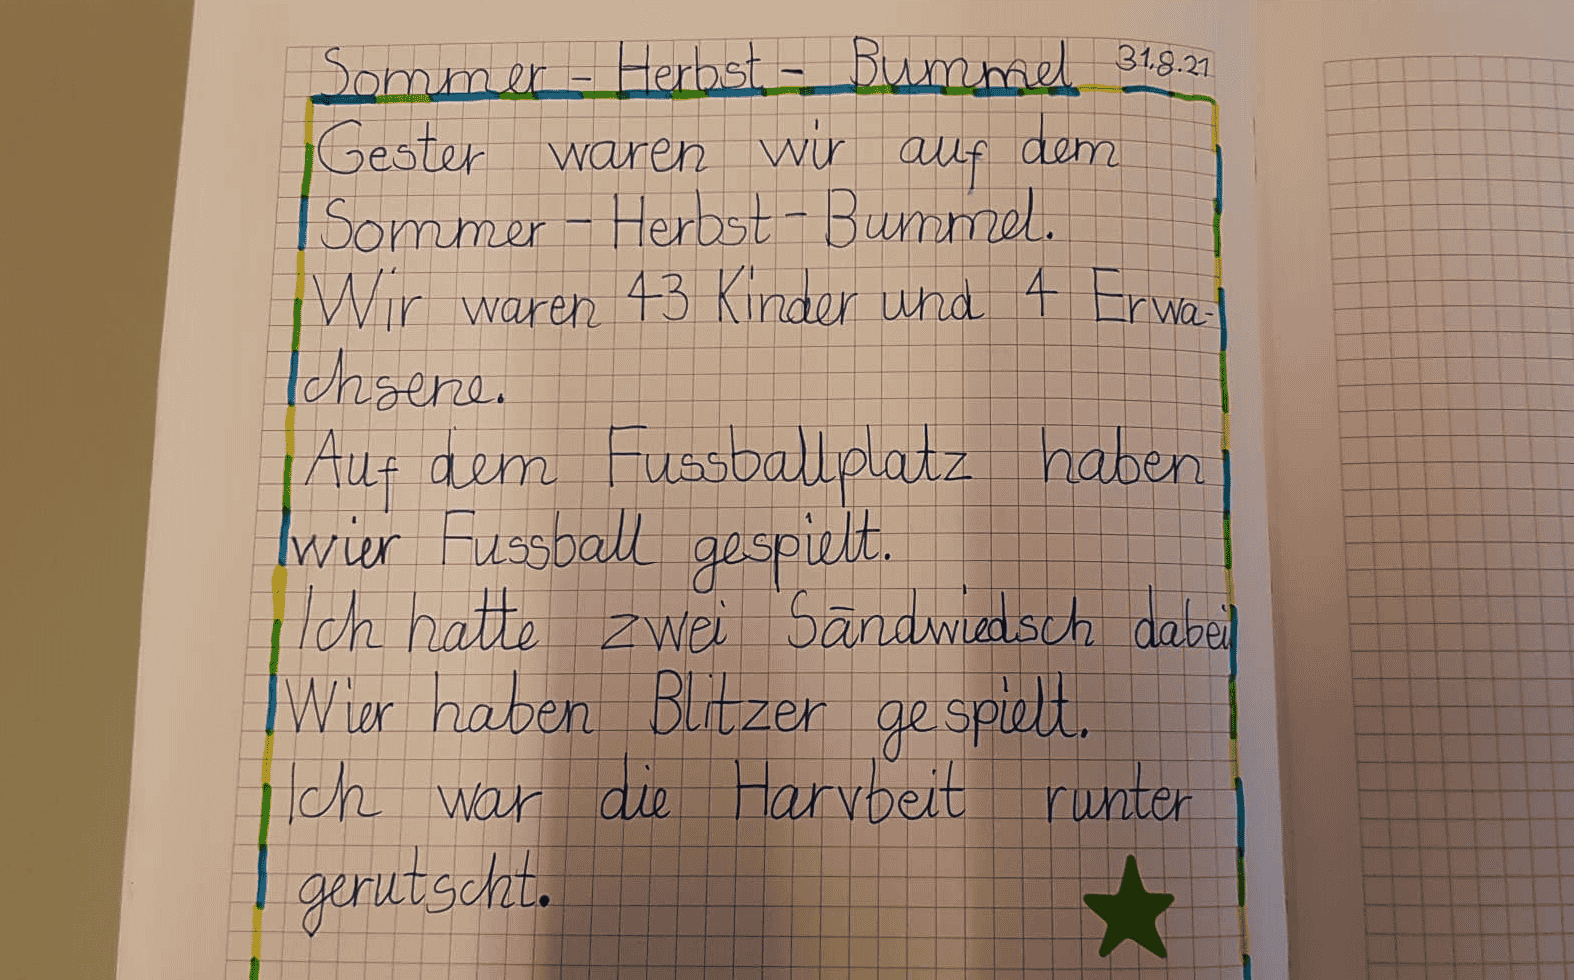 Sommer - Herbst - Bummel 31.8.21
Gester waren wir auf dem
Sommer - Herbst - Bummel.
Wir waren 43 Kinder und 4 Erwa-
chsene.
Auf dem Fussballplatz haben
wier Fussball gespielt.
Ich hatte zwei Sändwiedsch dabei
Wier haben Blitzer gespielt.
Ich war die Harvbeit runter
gerutscht.